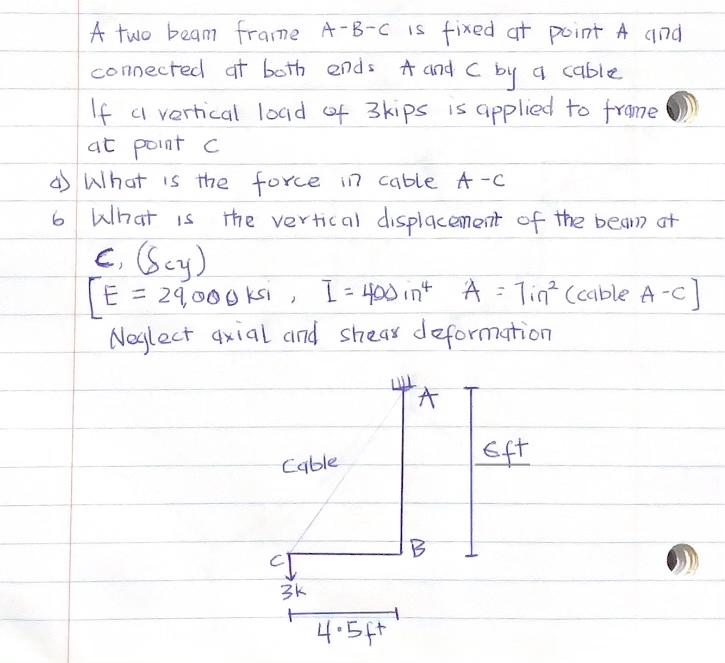 A two beam frame A-B-C is fixed at point A and
connected at both ends A and C by a cable
If a vertical load of 3kips is applied to frame
at point C
a) What is the force in cable A-C
b What is the vertical displacement of the beam at
C, (δcy)
[E = 29,000 ksi, I = 400 in⁴ A = 1in² (cable A-C]
Neglect axial and shear deformation
A
6ft
Cable
B
C
3k
4.5ft